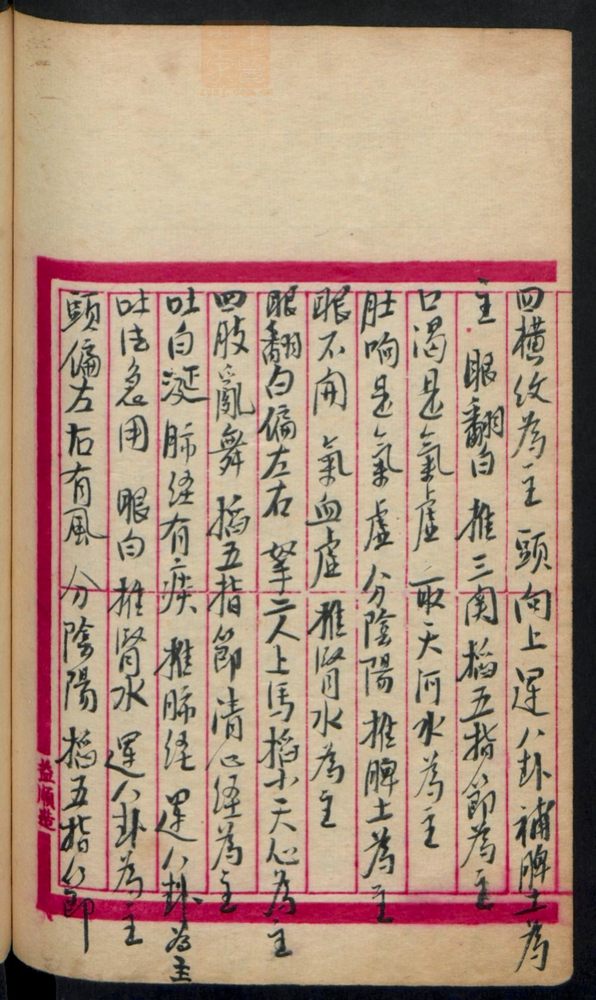 四横纹為主 頭向上 運八卦 補脾土為
主 眼翻白 推三関 掐五指節為主
口渴是氣虛 取天河水為主
肚响是氣虛 分陰陽 推脾土為主
眼不開 氣血虛 推腎水為主
眼翻白偏左右 拏二人上馬 掐小天心為主
四肢亂舞 掐五指節 清心経為主
吐白涎 肺経有疾 推肺経 運八卦為主
吐法急用 眼白 推腎水 運八卦為主
頭偏左右有風 分陰陽 掐五指節
益順造